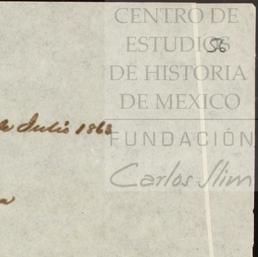 CENTRO DE
ESTUDIOS
56
DE HISTORIA
DE MEXICO
FUNDACIÓN
de Julio 186
Carlos Slim